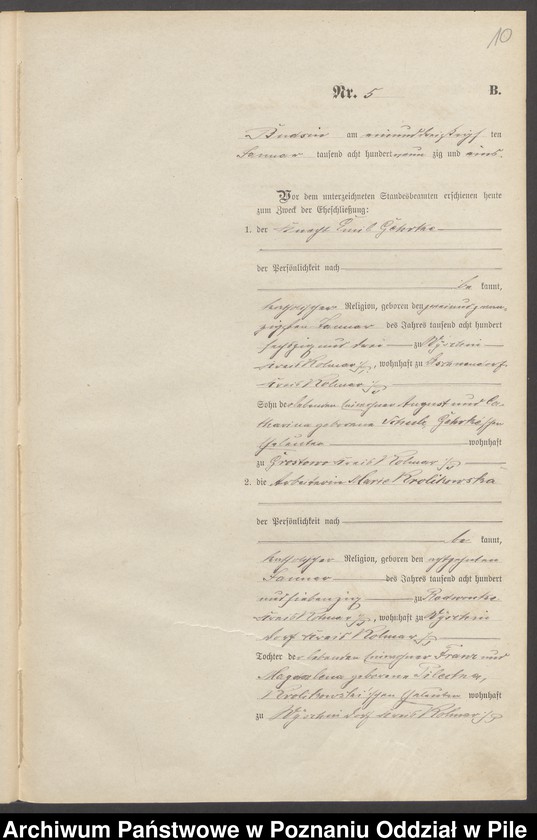 10
Nr. 5 B.
Budsin am einunddreißigsten
Januar tausend acht hundert neunzig und eins.
Vor dem unterzeichneten Standesbeamten erschienen heute
zum Zweck der Eheschließung:
1. der Knecht Emil Gehrke
der Persönlichkeit nach
be kannt,
katholischer Religion, geboren den zweiundzwan-
zigsten Januar des Jahres tausend acht hundert
sechszig und drei zu
Kreis Kolmar i/P, wohnhaft zu
Kreis Kolmar i/P
Sohn der lebenden Einwohner August und Ca-
tharina geborene Gehrke'schen
Eheleute wohnhaft
zu Kreis Kolmar i/P
2. die Arbeiterin Marie Krolikowska
der Persönlichkeit nach
be kannt,
katholischer Religion, geboren den achtzehnten
Januar des Jahres tausend acht hundert
und siebenzig zu
Kreis Kolmar i/P, wohnhaft zu
dorf Kreis Kolmar i/P
Tochter der lebenden Einwohner Franz und
Magdalena geborene
Krolikowski'schen Eheleuten wohnhaft
zu Kreis Kolmar i/P
Archiwum Państwowe w Poznaniu Oddział w Pile